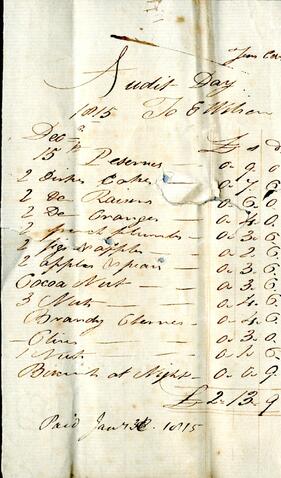 Audit Day
1815 To E Wilson
Dec
15 Deserves — 0.9.0
2 Dishes Cakes — 0.7.6
2 Do Raisins — 0.6.0
2 Do Oranges — 0.4.0
— 0.3.6
2 apples — 0.2.6
2 apples & pears — 0.3.6
Cocoa Nut — 0.3.6
3 Nuts — 0.4.6
Brandy Cherries — 0.4.6
Olives — 0.3.6
1 Nuts — 0.1.6
Biscuits at Night — 0.0.9
£ 2.13.9
Paid Jany 1815